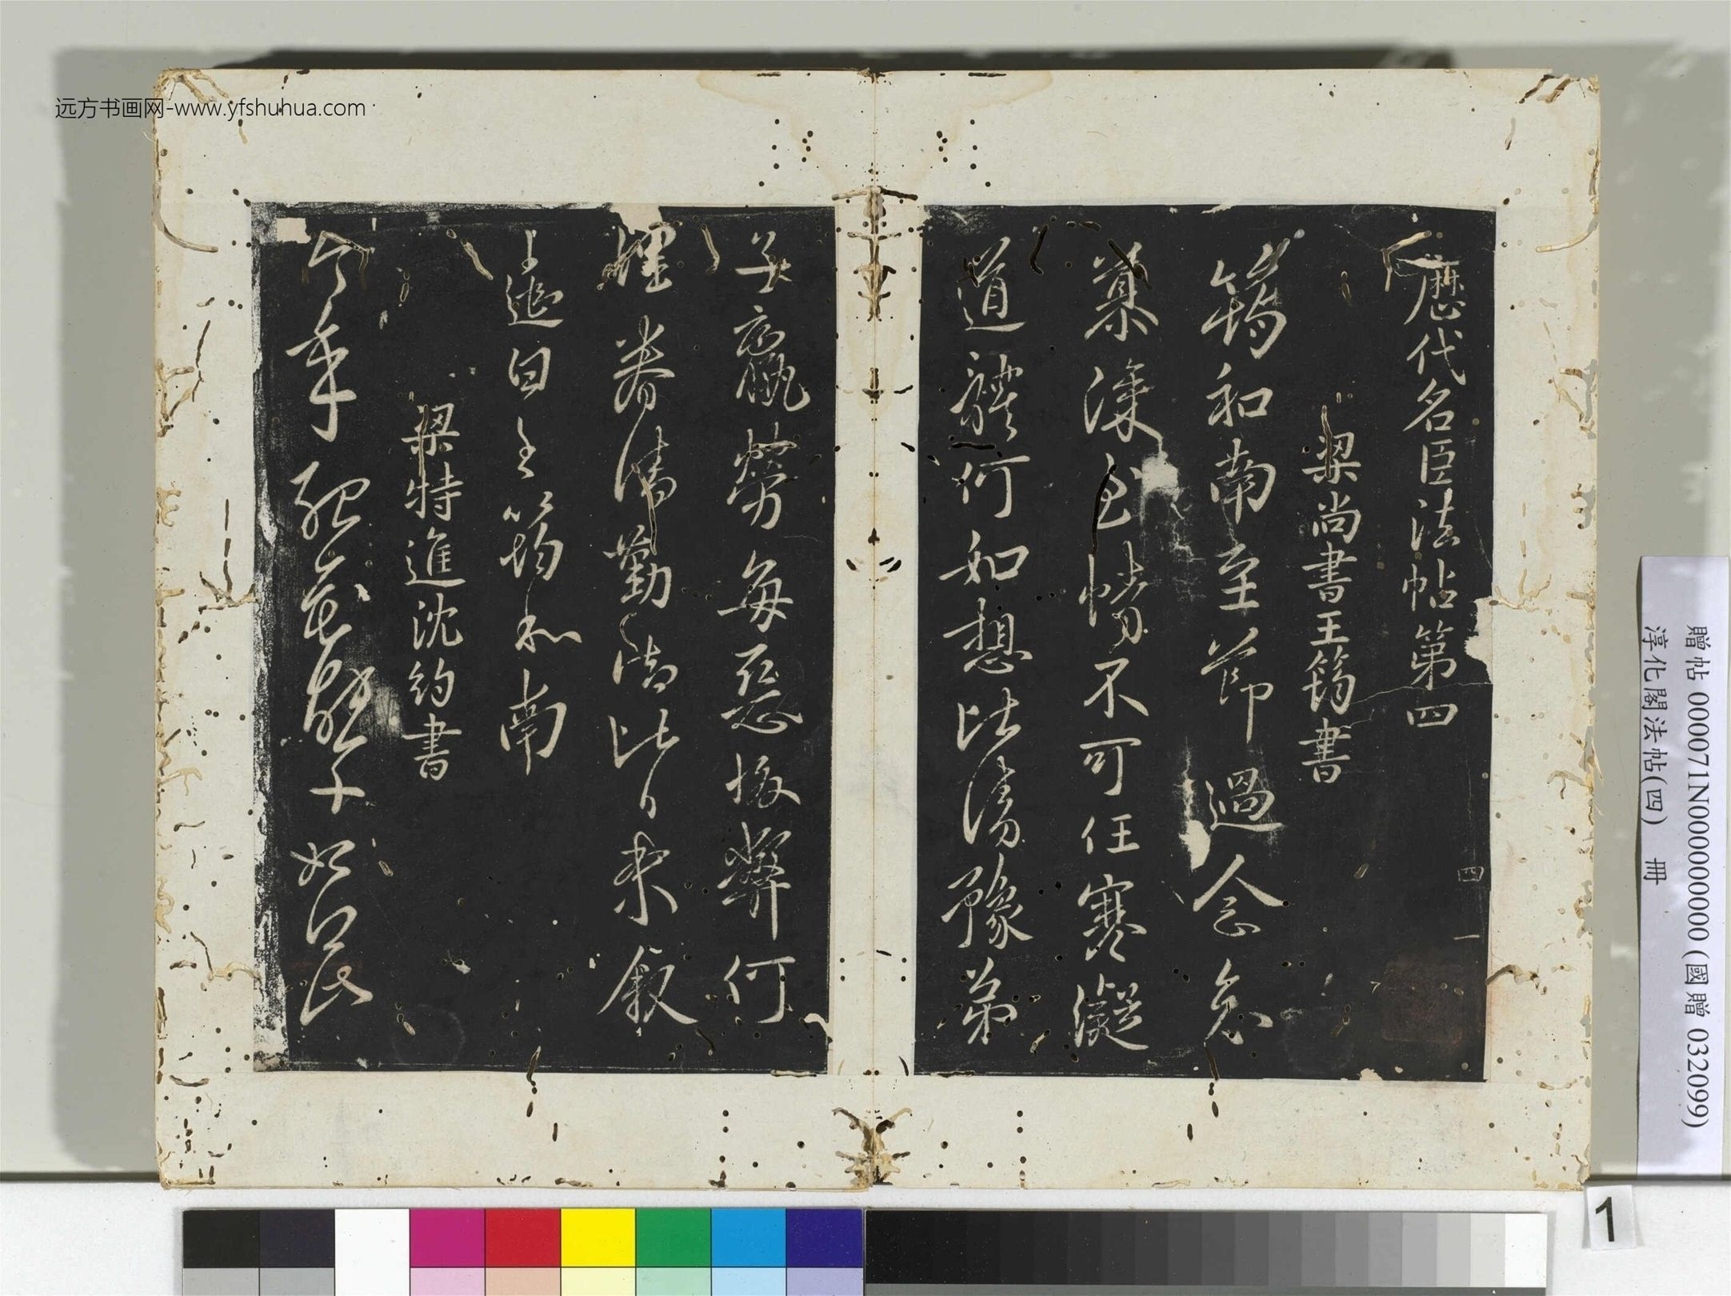 远方书画网-www.yfshuhua.com
歷代名臣法帖第四
梁尚書王筠書
筠和南至節過念哀
慕深至情不可任寒凝
道體何如想比清豫弟
子羸勞每惡振弊何
理眷清勤御比日來敘
王遣白王筠和南
梁特進沈約書
今年
四
一
贈帖 000071N000000000 (國贈 032099)
淳化閣法帖(四) 冊
1